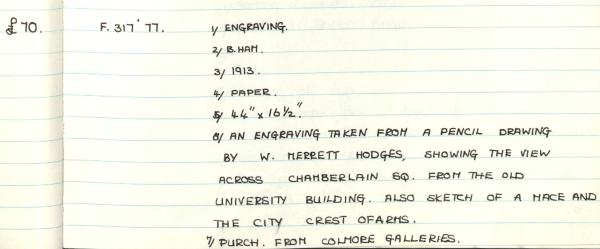 £70. F. 317' 77. 1/ ENGRAVING.
2/ B.HAM.
3/ 1913.
4/ PAPER.
5/ 44" x 16½".
6/ AN ENGRAVING TAKEN FROM A PENCIL DRAWING
BY W. MERRETT HODGES, SHOWING THE VIEW
ACROSS CHAMBERLAIN SQ. FROM THE OLD
UNIVERSITY BUILDING. ALSO SKETCH OF A MACE AND
THE CITY CREST OFARMS.
7/ PURCH. FROM COLMORE GALLERIES.